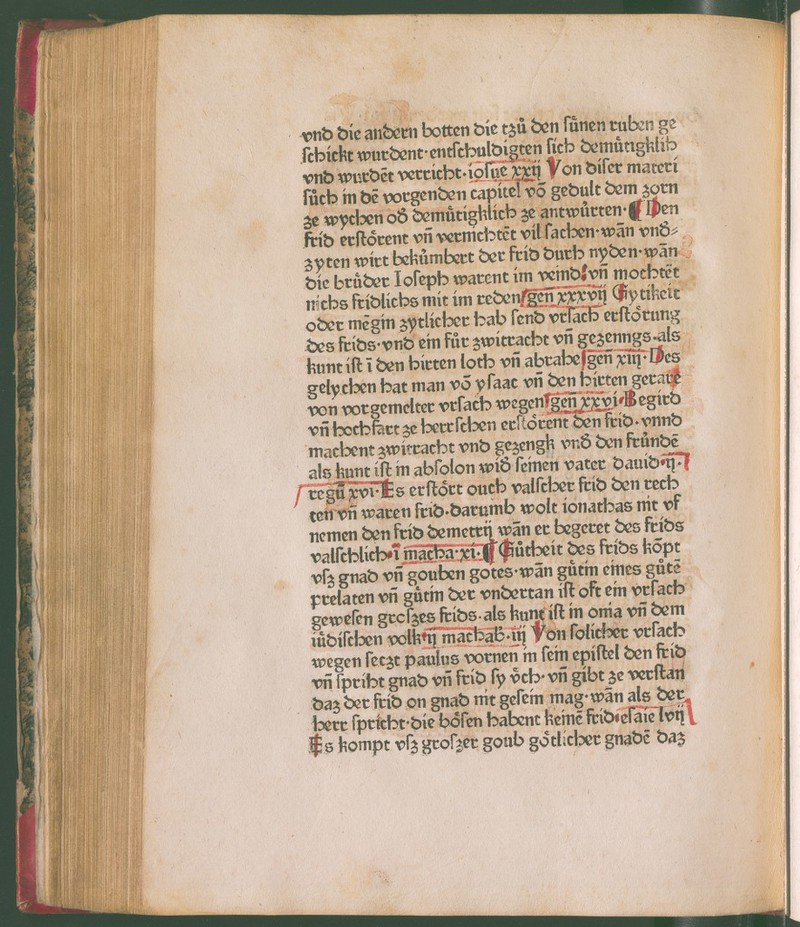 vnd die andern botten die tzů den sůnen ruben ge
schickt wurdent·entschuldigten sich demůtigklih
vnd wurdēt verricht·iosue xxij Von diser materi
sůch in dē vorgenden capitel vō gedult dem zorn
ze wychen od̄ demůtigklich ze antwůrten·¶ Den
frid erstȯrent vn̄ vernichtēt vil sachen·wān vnd̄⸗
zyten wirt bekůṁbert der frid durh nyden·wān
die brůder Ioseph warent im veind·vn̄ mochtēt
nichs fridlichs mit im reden gen̄ xxxvij Gytikeit
oder mēgin zytlicher hab send vrsach erstȯrung
des frids·vnd ein fůr zwitracht vn̄ gezenngs·als
kunt ist ī den hirten loth vn̄ abrahe gen̄ xiij·Des
gelychen hat man vō ysaac vn̄ den hirten gerare
von vorgemelter vrsach wegen gen̄ xxvi·Begird
vn̄ hochfart ze herrschen erstȯrent den frid·vnnd
machent zwitracht vnd gezengk vnd̄ den frůndē
als kunt ist in absolon wid̄ seinen vater dauid·ij·
regū xvi·Es erstȯrt ouch valscher frid den rech
ten vn̄ waren frid·darumb wolt ionathas nit vf
nemen den frid demetrij wān er begeret des frids
valschlich·ī macha·xi·¶ Gůtheit des frids kōpt
vsz gnad vn̄ gouben gotes·wān gůtin eines gůtē
prelaten vn̄ gůtin der vndertan ist oft ein vrsach
gewesen groszes frids·als kunt ist in onia vn̄ dem
iůdischen volk·ij machab̄·iij Von solicher vrsach
wegen seczt paulus vornen in sein epistel den frid
vn̄ spriht gnad vn̄ frid sy v̊ch·vn̄ gibt ze verstan
daz der frid on gnad nit gesein mag·wān als der
herr spricht·die bȯsen habent keinē frid·esaie lvij
Es kompt vsz groszer goub gȯtlicher gnadē daz